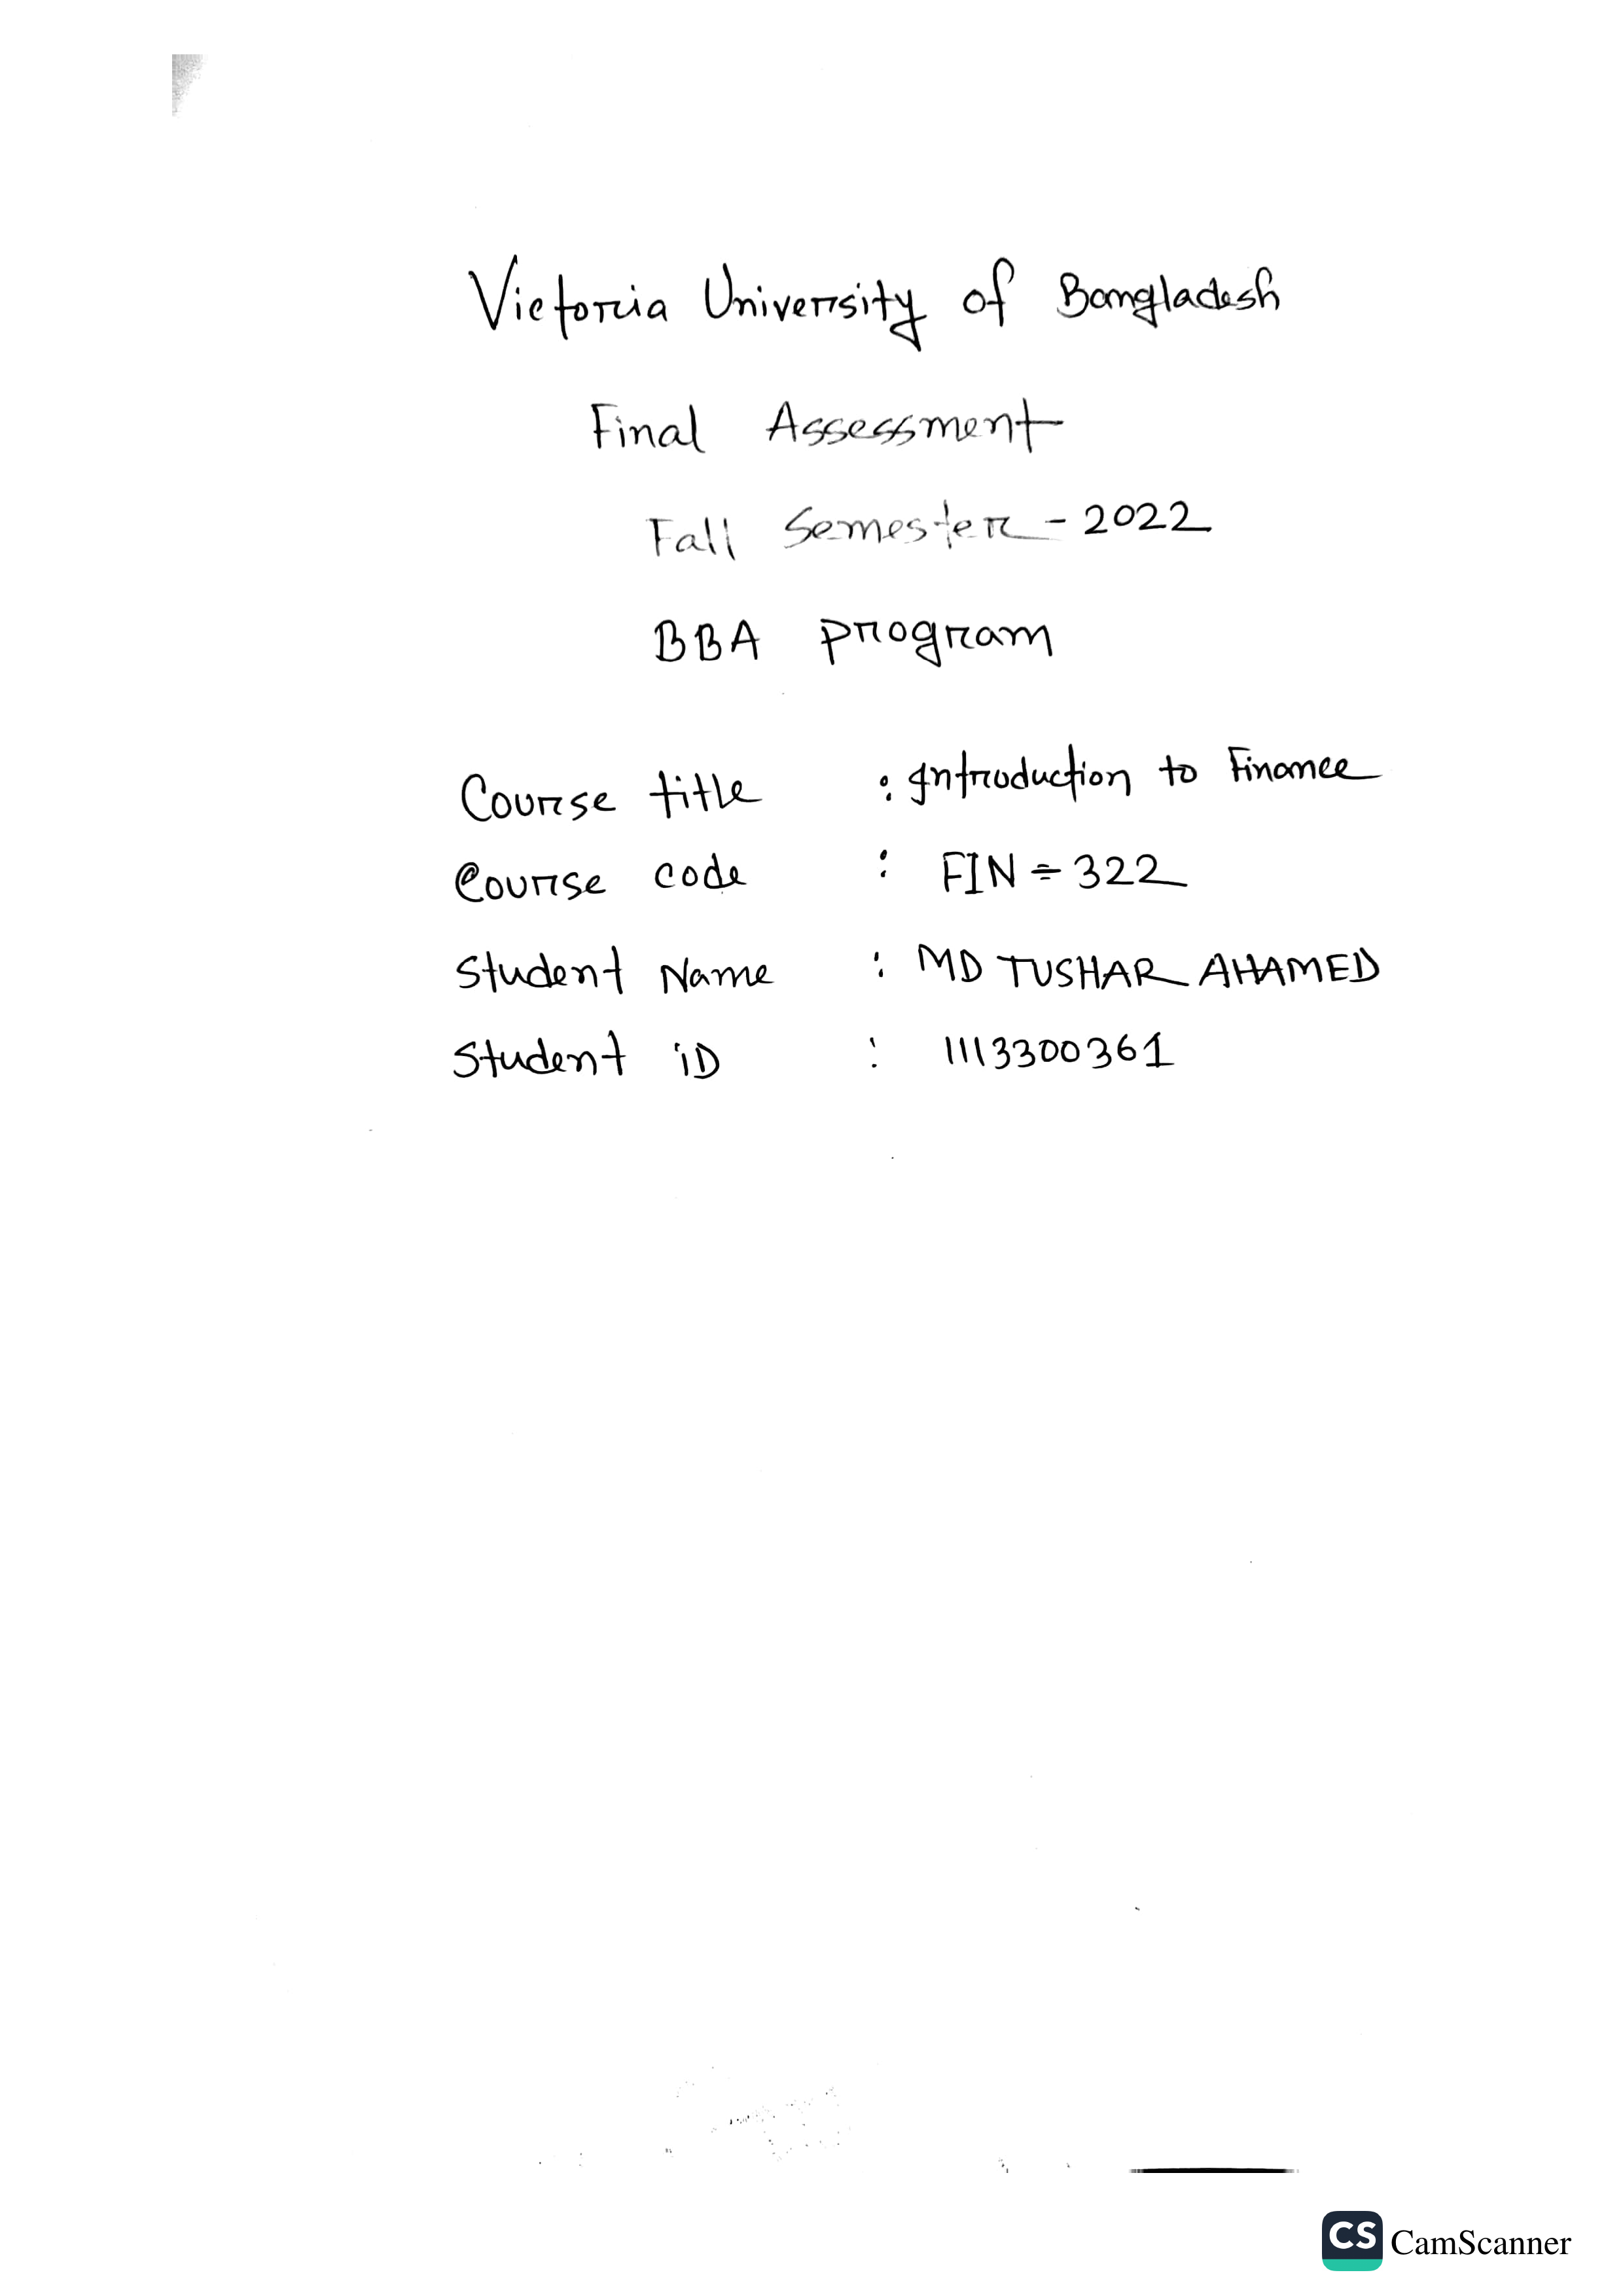 Victoria University of Bangladesh
Final Assessment
Fall Semester - 2022
BBA program
Course title : Introduction to Finance
Course code : FIN = 322
Student Name : MD TUSHAR AHAMED
Student iD : 1113300361
CS CamScanner